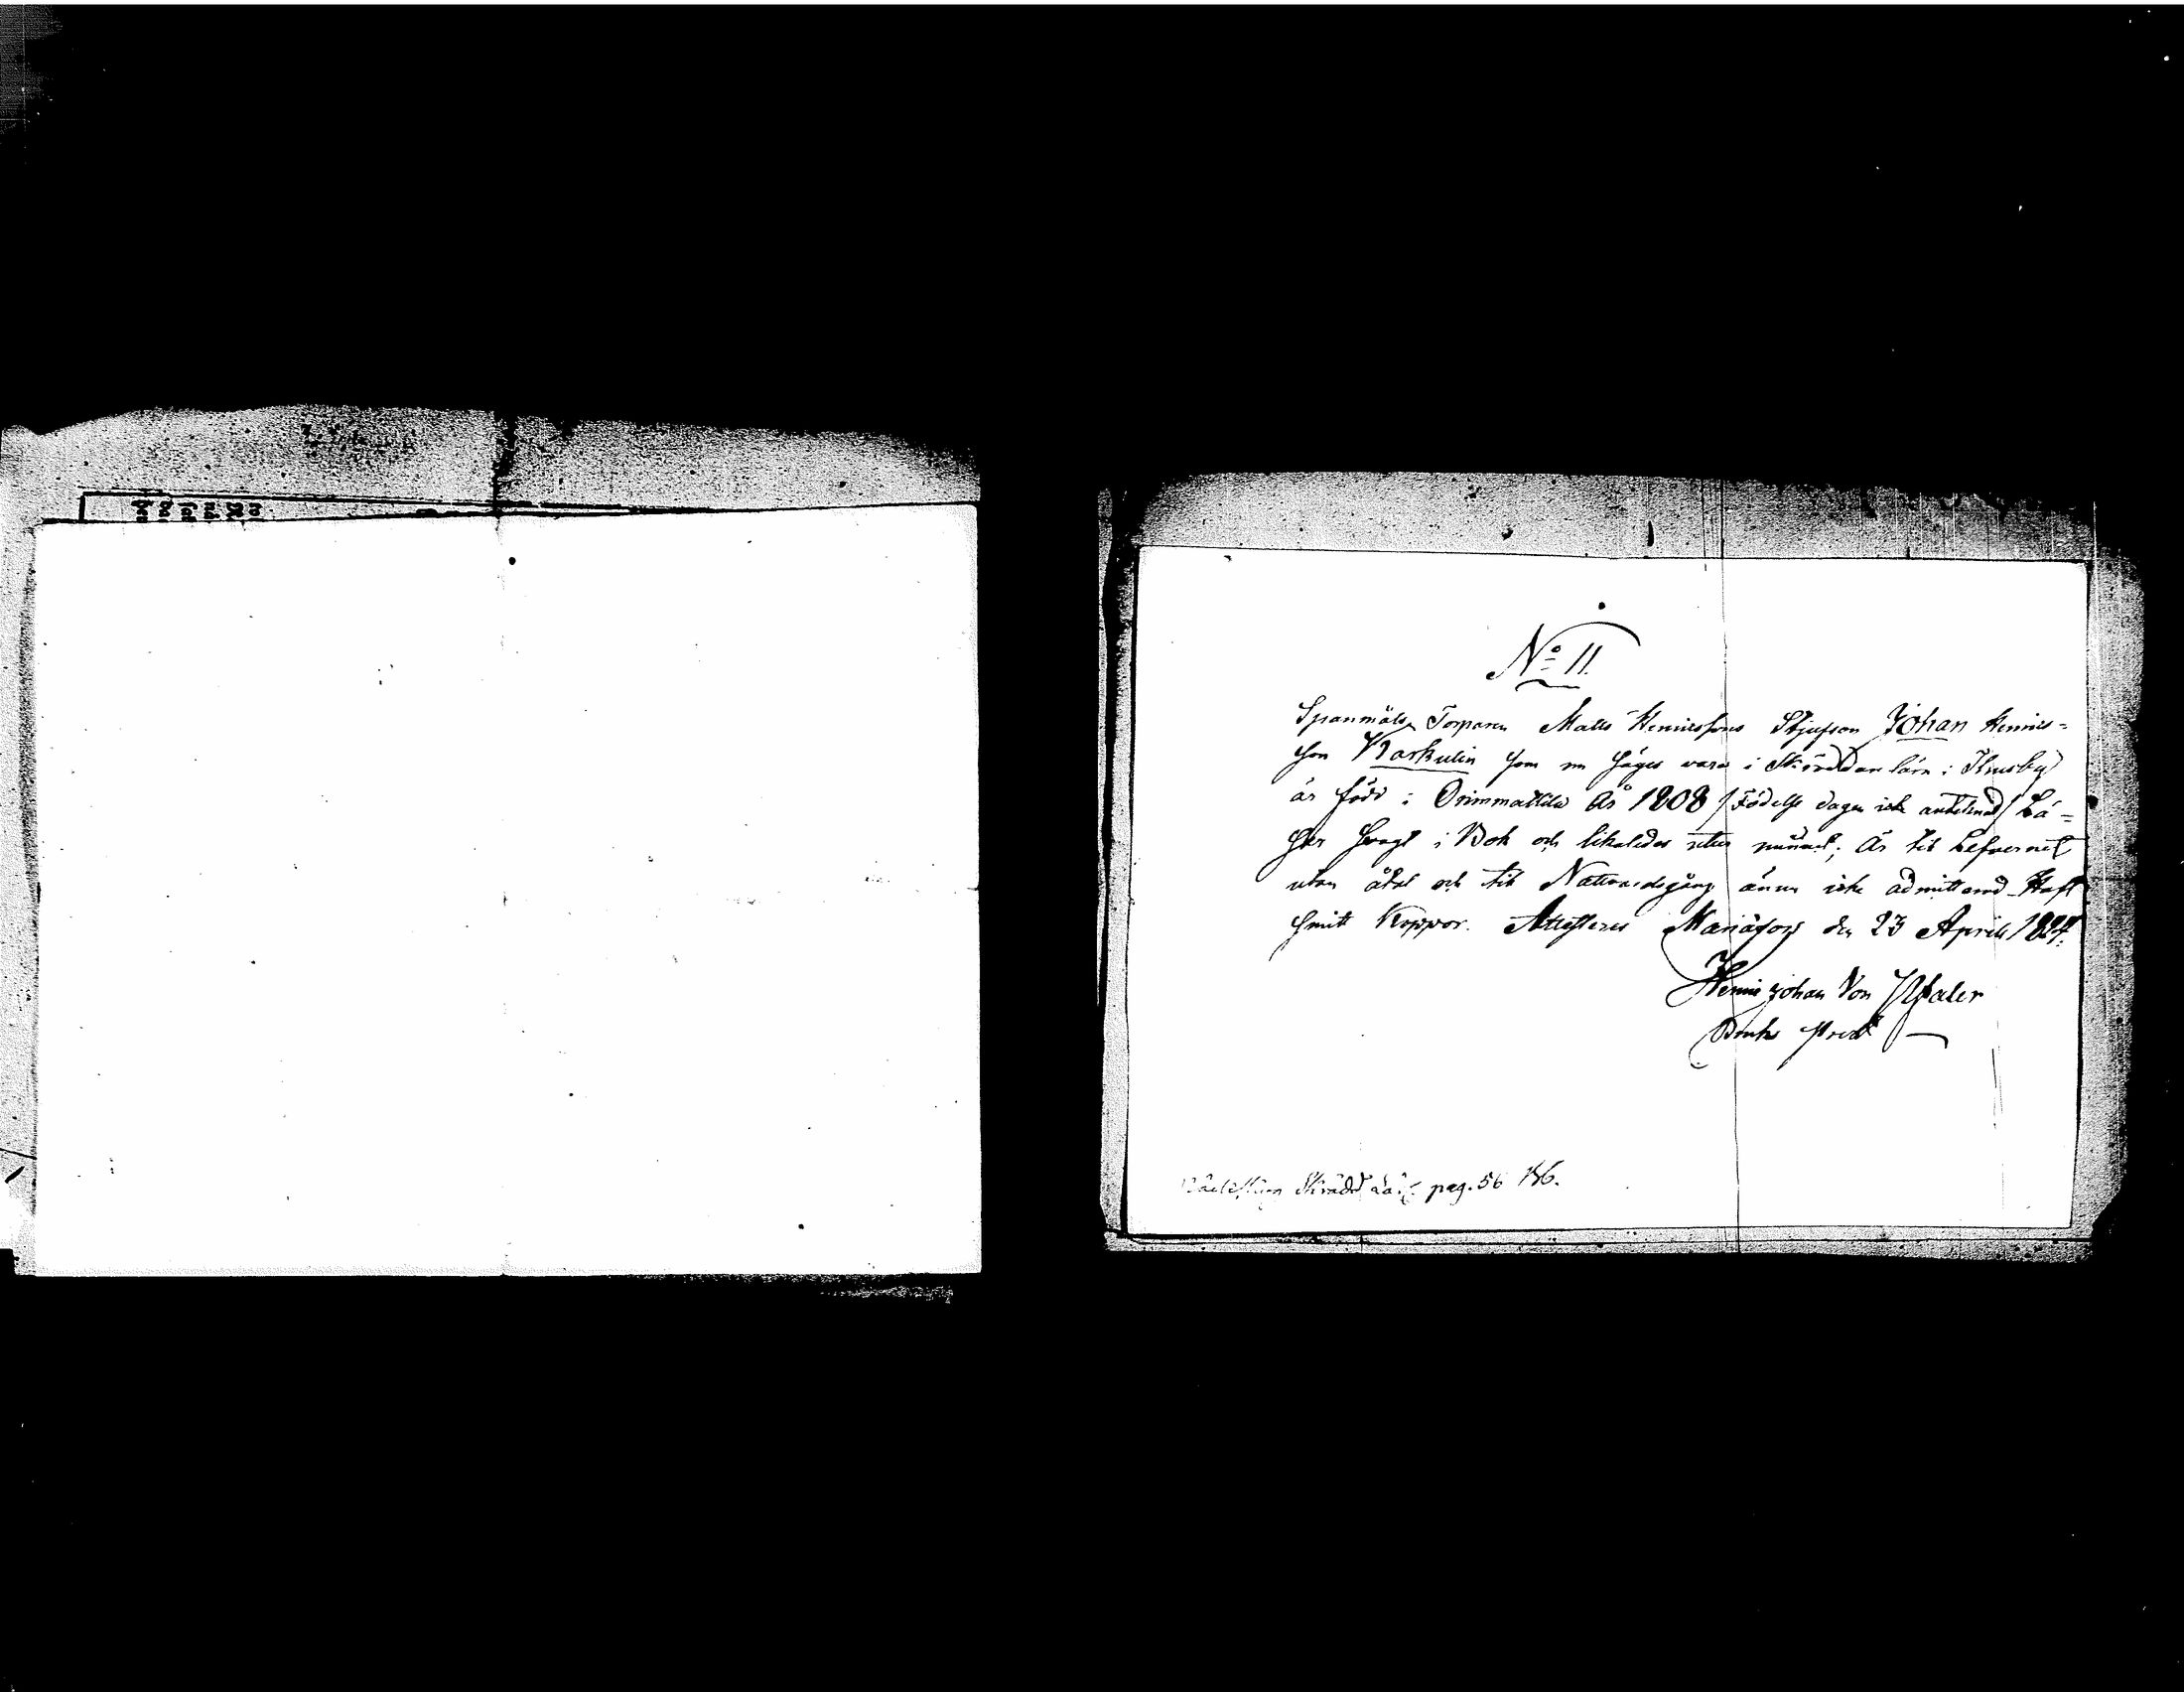 No 11.
Spanmåls Torparen Matts Henrikssons Stjufson Johan Henriks=
son Karkulin som nu säges vara i Skräddar lära i Thusby
är född i Orimmattila År 1808 /Födelse dagen icke antecknad/ Lä=
ser svagt i Bok och likaledes utur minnet; Är till Lefvernet
utan åtal och till Nattvardsgång ännu icke admitterad. Haft
smitt Koppor. Attesteras Mariæfors den 23 April 1824.
Henric Johan Von
Bruks Pred
Skrädd pag. 56